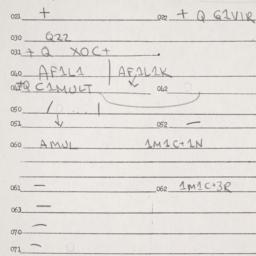 021 + 022 + Q G1VIR
030 Q22
031 + Q XOC+ .
040 AF1L1 | AF1L1K
+Q C1MULT 042
050 / |
051 052 —
060 AMUL 1M1C+1N
061 — 062 1M1C+3R
063 —
070 —
071 —